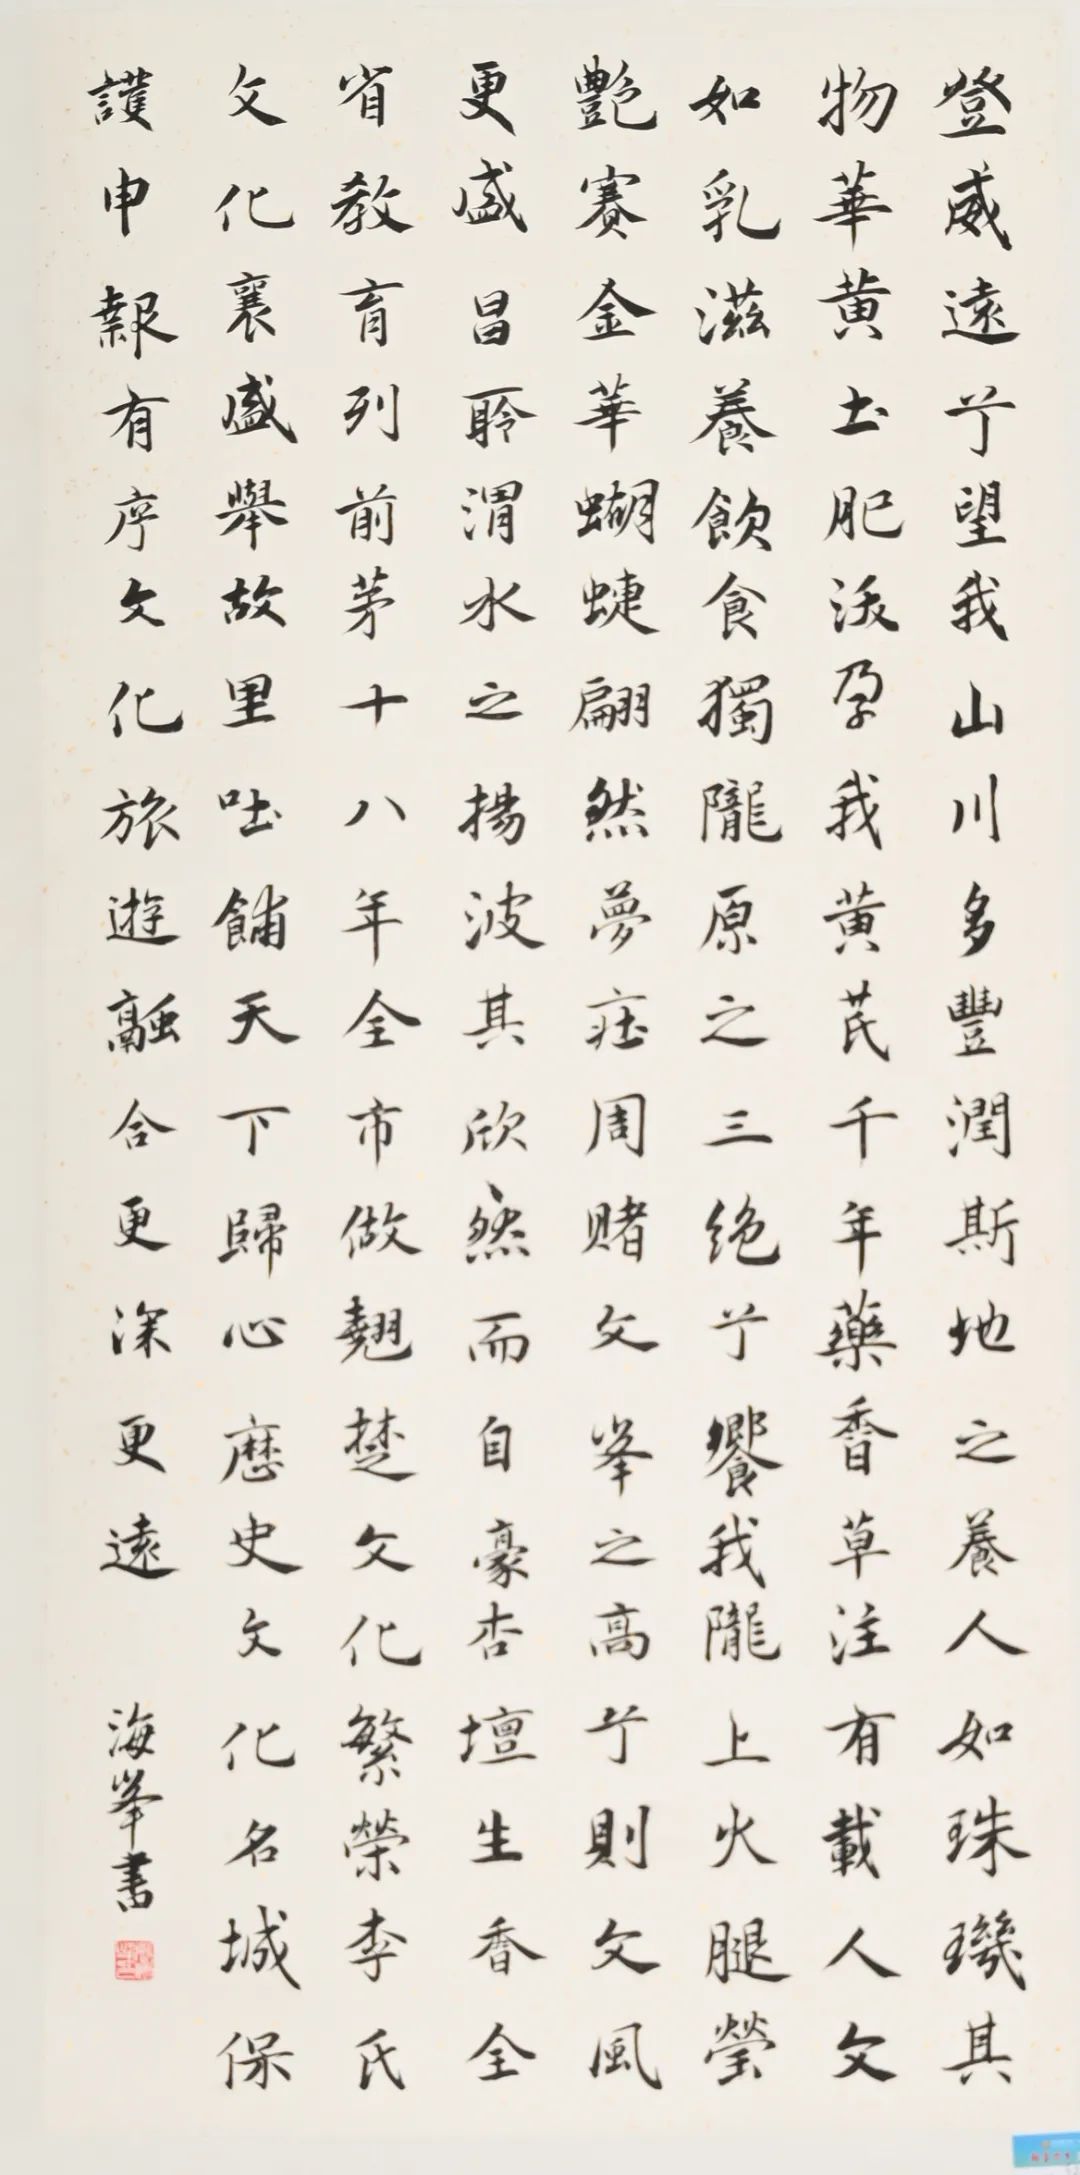 登威遠兮望我山川多豐潤斯地之養人如珠璣其
物華黃土肥沃孕我黃芪千年藥香草注有載人文
如乳滋養飲食獨隴原之三絶兮饗我隴上火腿瑩
艷賽金華蝴蜨翩然夢莊周賭文峯之高兮則文風
更盛昌聆渭水之揚波其欣然而自豪杏壇生香全
省教育列前茅十八年全市做翹楚文化繁榮李氏
文化襄盛舉故里吐餔天下歸心歷史文化名城保
護申報有序文化旅遊融合更深更遠
海峯書